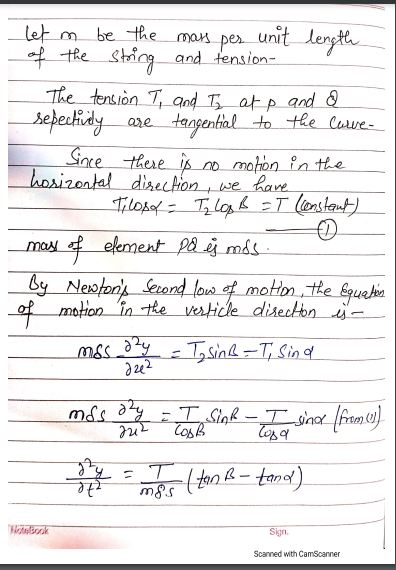 let m be the mass per unit length
of the string and tension-
The tension T₁ and T₂ at p and Q
sepectively are tangential to the curve-
Since there is no motion in the
horizontal direction, we have
T₁cosα = T₂ cosβ = T (constant)
—①
mass of element PQ is mδs.
By Newton's Second low of motion, the Equation
of motion in the verticle direction is-
mδs ∂²y/∂x² = T₂ sinβ - T₁ sinα
mδs ∂²y/∂x² = T/cosβ sinβ - T/cosα sinα (from(1))
∂²y/∂t² = T/mδs (tanβ - tanα)
NoteBook
Sign.
Scanned with CamScanner